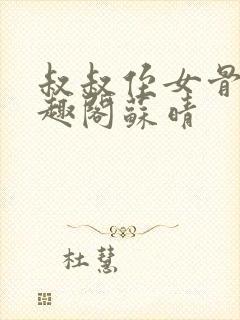 叔叔侄女骨
趣阁蘇晴
杜慧